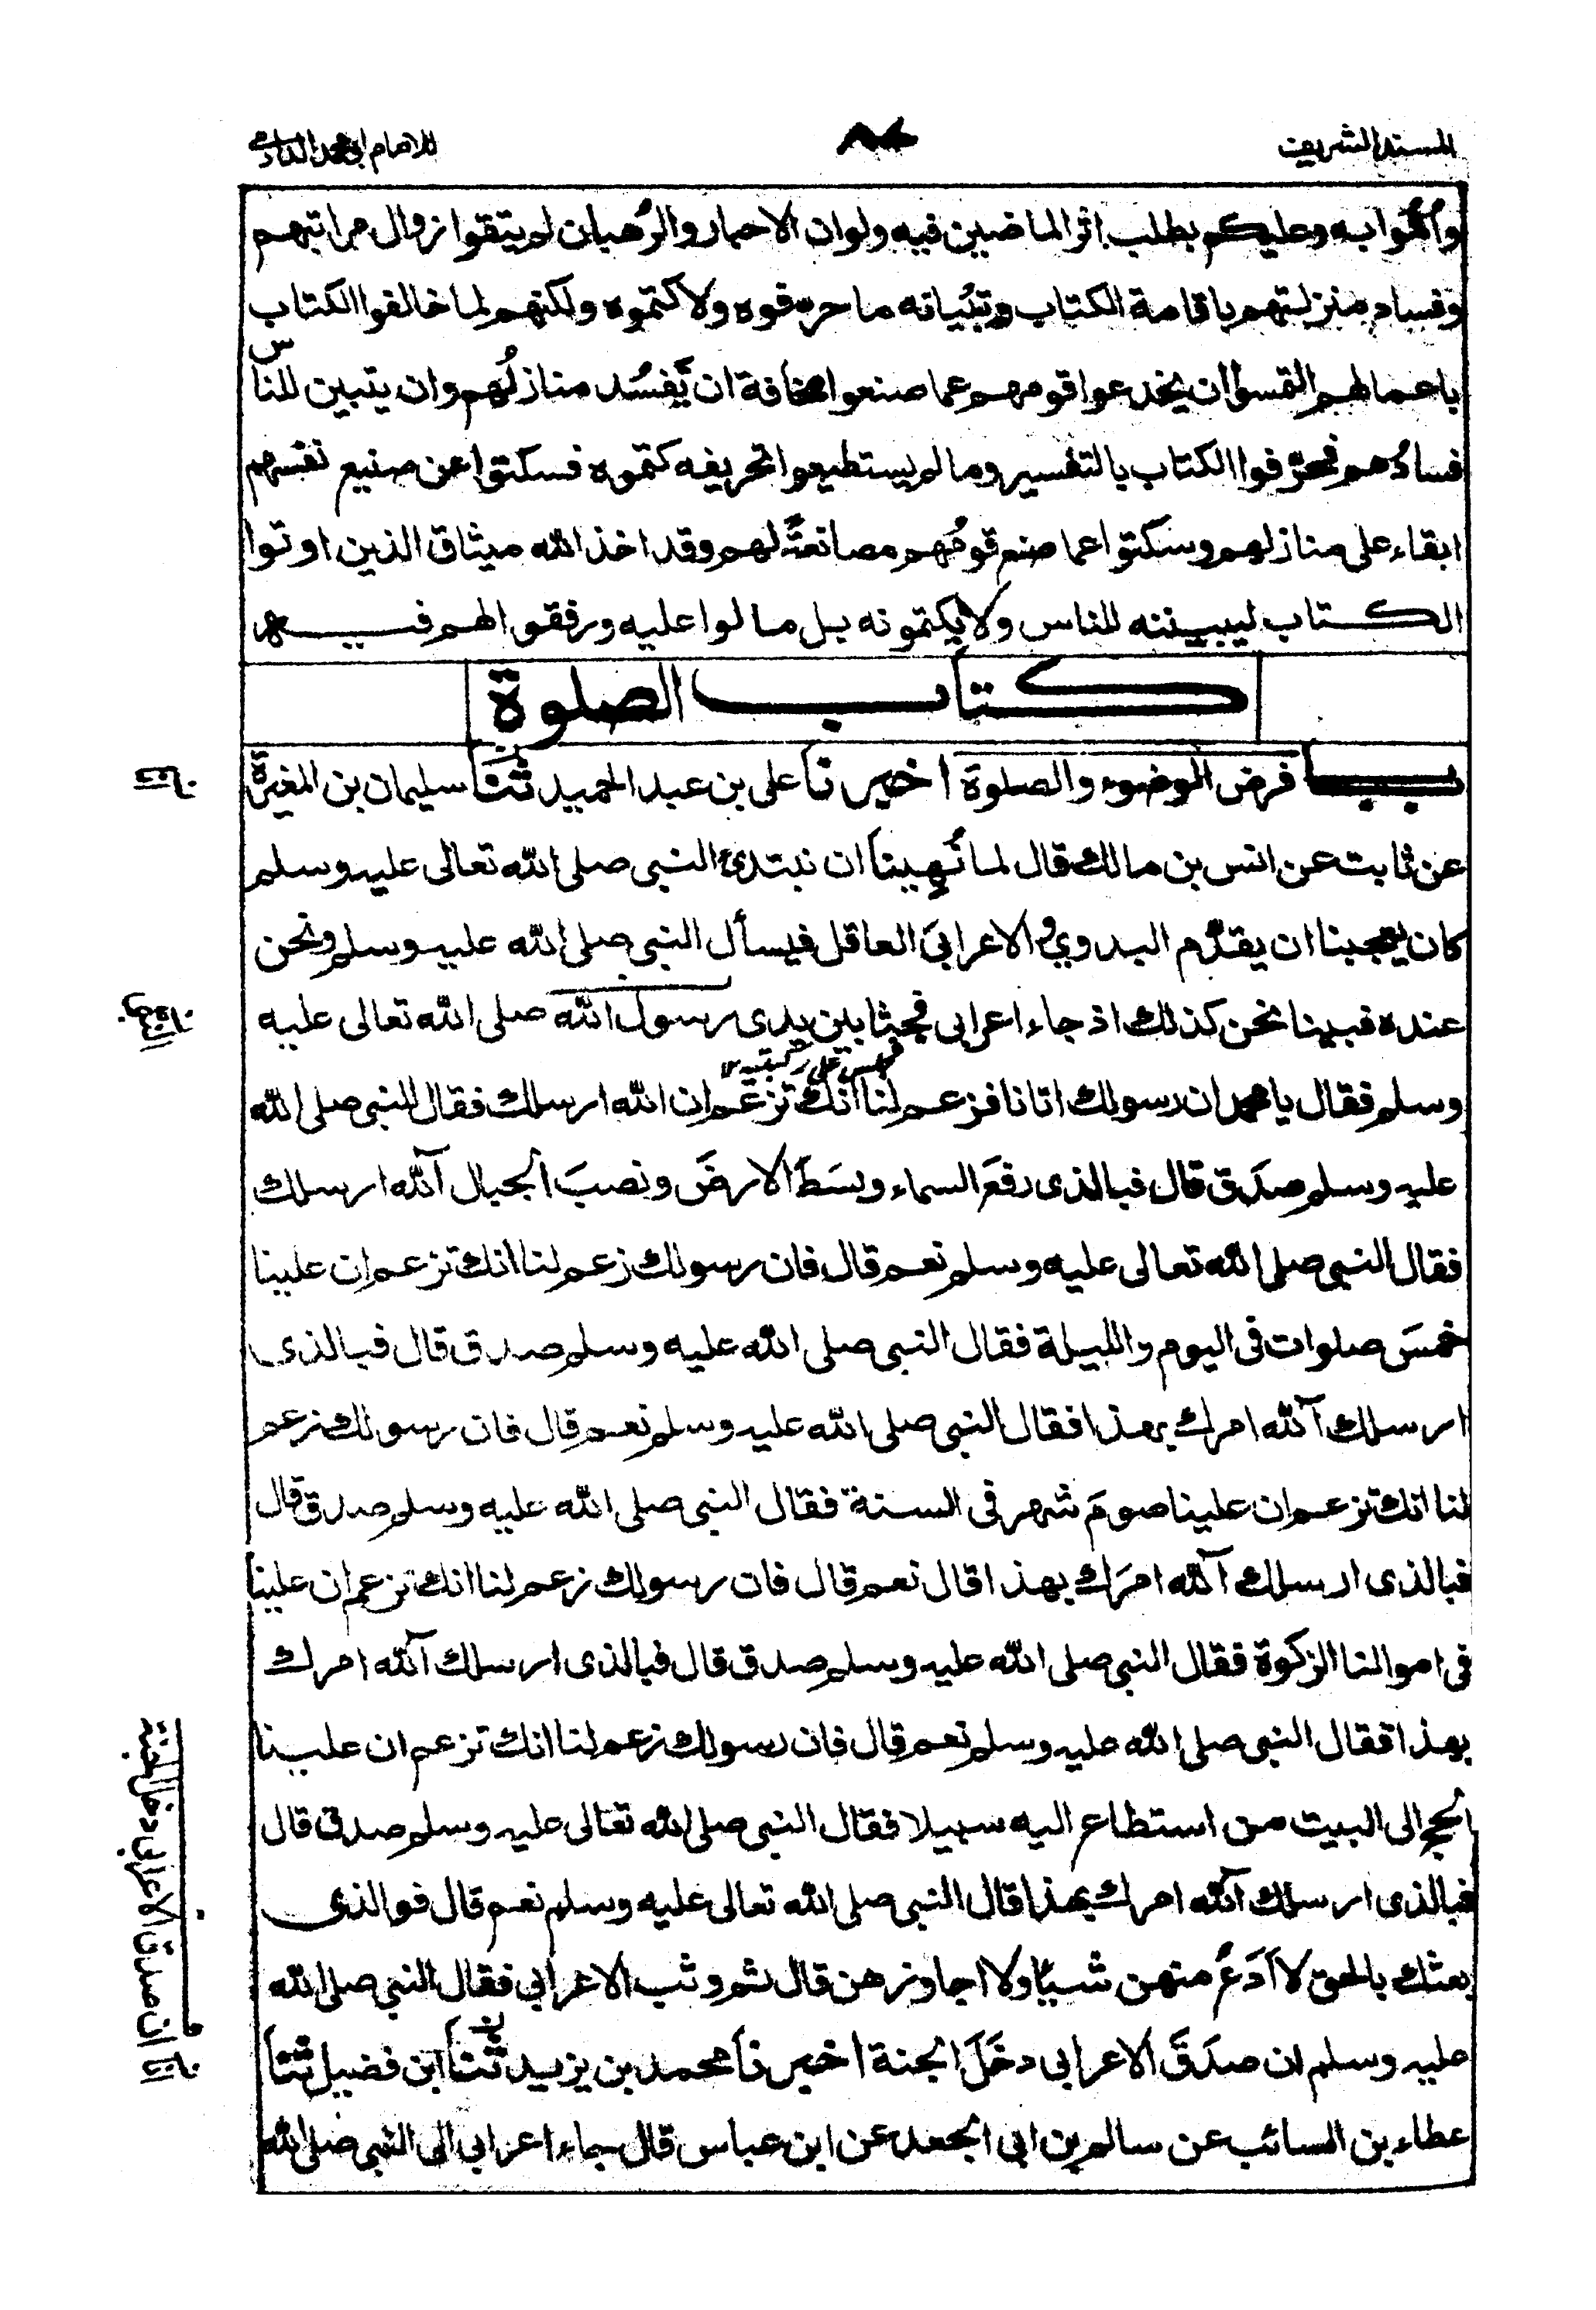 المسند الشريف
٨٤
للامام ابى محمد الدارمى
وأمّوا به وعليكم بطلب اثر الماضين فيه ولو ان الاحبار والرُهبان لم يتقوا زوال مراتبهم
وفساد منزلتهم باقامة الكتاب وتبيانه ما حرفوه ولا كتموه ولكنهم لما خالفوا الكتاب
باعمالهم التمسوا ان يخدعوا قومهم عما صنعوا مخافة ان يَّفسُد منازلُهم وان يتبين للناس
فسادُهم فحرّفوا الكتاب بالتفسير وما لم يستطيعوا تحريفه كتموه فسكتوا عن صنيع نفسهم
ابقاء على منازلهم وسكتوا عما صنع قومُهم مصانعةً لهم وقد اخذ الله ميثاق الذين اوتوا
الكتاب ليبيننه للناس ولا يكتمونه بل مالوا عليه ورفقوا لهم فيه
كتاب الصلوة
باب فرض الوضوء والصلوة اخبرنا على بن عبد الحميد ثنا سليمان بن المغيرة
عن ثابت عن انس بن مالك قال لما نُهينا ان نبتدئ النبى صلى الله تعالى عليه وسلم
كان يعجبنا ان يقدُم البدوي والاعرابي العاقل فيسأل النبى صلى الله عليه وسلم ونحن
عنده فبينا نحن كذلك اذ جاء اعرابى فجثا بين يدى رسول الله صلى الله تعالى عليه
فجلس على ركبتيه
وسلم فقال يا محمد ان رسولك اتانا فزعم لنا انك تزعم ان الله ارسلك فقال النبى صلى الله
عليه وسلم صدَق قال فبالذى رفعَ السماء وبسَطَ الارضَ ونصبَ الجبال آلله ارسلك
فقال النبى صلى الله تعالى عليه وسلم نعم قال فان رسولك زعم لنا انك تزعم ان علينا
خمسَ صلوات فى اليوم والليلة فقال النبى صلى الله عليه وسلم صدق قال فبالذى
ارسلك آلله امرك بهذا فقال النبى صلى الله عليه وسلم نعم قال فان رسولك زعم
لنا انك تزعم ان علينا صومَ شهر فى السنة فقال النبى صلى الله عليه وسلم صدق قال
فبالذى ارسلك آلله امرَك بهذا قال نعم قال فان رسولك زعم لنا انك تزعم ان علينا
فى اموالنا الزكوة فقال النبى صلى الله عليه وسلم صدق قال فبالذى ارسلك آلله امرك
بهذا فقال النبى صلى الله عليه وسلم نعم قال فان رسولك زعم لنا انك تزعم ان علينا
الحج الى البيت من استطاع اليه سبيلا فقال النبى صلى الله تعالى عليه وسلم صدق قال
فبالذى ارسلك آلله امرك بهذا قال النبى صلى الله تعالى عليه وسلم نعم قال فوالذى
بعثك بالحق لا اَدَعُ منهن شيئًا ولا اجاوزهن قال ثم وثب الاعرابي فقال النبى صلى الله
عليه وسلم ان صدَقَ الاعرابى دخَلَ الجنة اخبرنا محمد بن يزيد ثنا ابن فضيل ثنا
عطاء بن السائب عن سالم بن ابى الجعد عن ابن عباس قال جاء اعرابي الى النبى صلى الله
ان صدق الاعرابى دخل الجنة